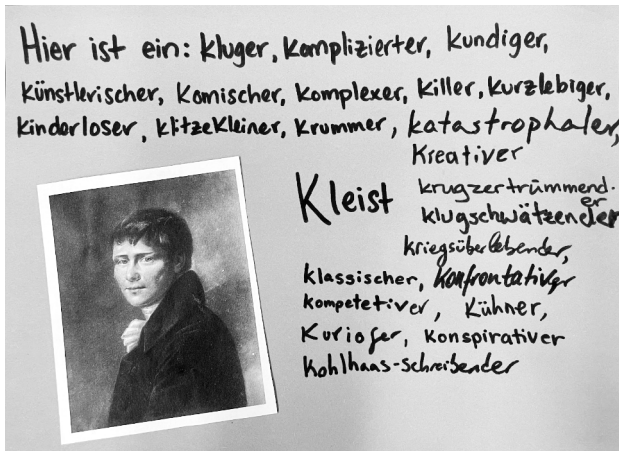 Hier ist ein: kluger, komplizierter, kundiger,
künstlerischer, komischer, komplexer, killer, kurzlebiger,
kinderloser, klitzekleiner, krummer, katastrophaler,
kreativer
Kleist krugzertrümmernder
klugschwätzender
kriegsüberlebender,
klassischer, konfrontativer
kompetetiver, kühner,
kurioser, konspirativer
kohlhaas-schreibender